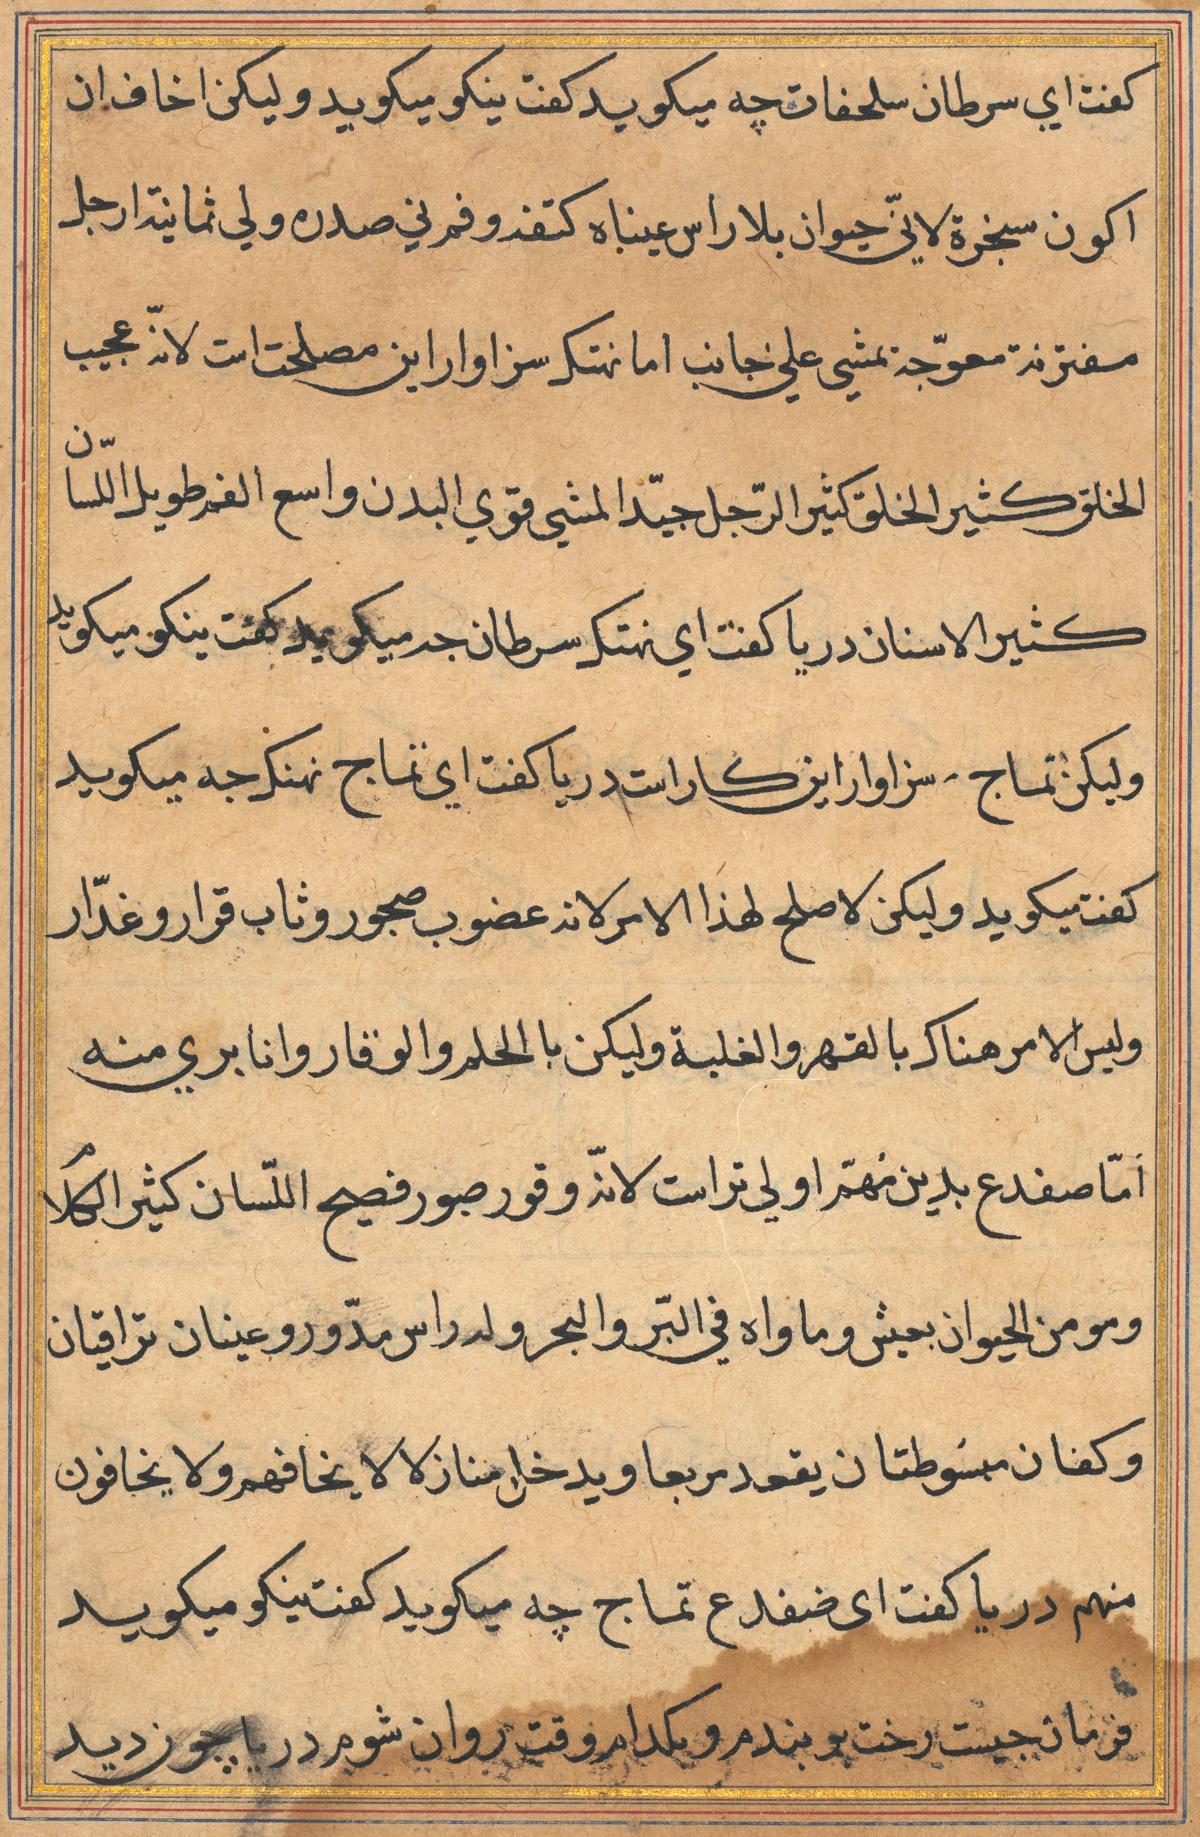 كفت اي سرطان سلحفات چه ميكويد كفت ينكو ميكويد وليكن اخاف ان
اكون سخرة لانّي حيوان بلا راس عيناه كتفه و فم ني صدره ولي ثمانية ارجل
مفترنة معوّجة تمشي علي جانب اما نهتك سزاوار اين مصلحت است لانّه عجيب
الخلق كثير الخلق كثير الرّجل جيّد المشي قوي البدن واسع الفم طويل اللسّان
كثير الاسنان دريا كفت اي نهتك سرطان جه ميكويد كفت ينكو ميكويد
وليكن تماج سزاوار اين كار است دريا كفت اي تماج نهنك جه ميكويد
كفت ميكويد وليكن لا صلح لهذا الامر لانه عضوب صجور وثاب قرار و غدّار
وليس الامر هناك بالقهر والغلبة وليكن با الحلم والوقار وانا بري منه
امّا صفدع بدين مُهمّ اولي تر است لانّه وقور صبور فصيح اللّسان كثير الكلام
ومو من الحيوان بعيش و ماواه في البّر والبحر وله راس مدّور و عينان تراقيان
وكفان مبسُوطتان يقعد مربعا ويدخل منازلا لا يخافهم ولا يخافون
منهم دريا كفت اى ضفدع تماج چه ميكويد كفت ينكو ميكويد
فرمان جيست رخت بر بندم و بكدام وقت روان شوم دريا چون ديد